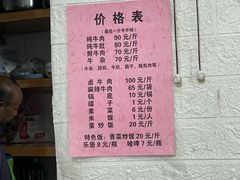 价格表
(最低一斤半开锅)
纯牛肉 90元/斤
纯牛肚 80元/斤
鲜牛肉 70元/斤
牛杂 70元/斤
卤牛肉 100元/斤
麻辣牛肉 65元/袋
锅底 10元/锅
碟子 1元/个
素菜 6元/份
米饭 1元/人
蛋炒饭 20元/斤
特色饭：青菜炒饭20元/斤
乐堡8元/瓶 哈啤7元/瓶